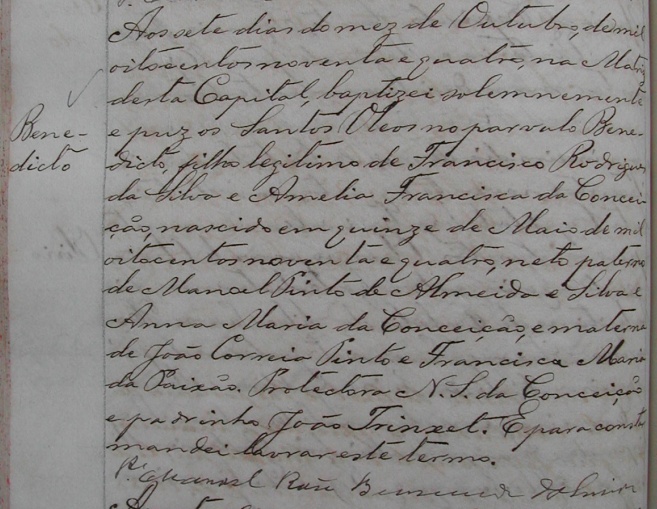 Aos sete dias do mez de Outubro, de mil
oitocentos noventa e quatro, na Matriz
desta Capital, baptizei solemnemente
Bene-
dicto
e puz os Santos Oleos no parvulo Bene-
dicto, filho legitimo de Francisco Rodrigues
da Silva e Amelia Francisca da Concei-
ção, nascido em quinze de Maio de mil
oitocentos noventa e quatro, neto paterno
de Manoel Pinto de Almeida e Silva e
Anna Maria da Conceição, e materno
de João Correia Pinto e Francisca Maria
da Paixão. Protectora N. S. da Conceição
e padrinho João Trinxet. E para constar
mandei lavrar este termo.
Pe Manoel